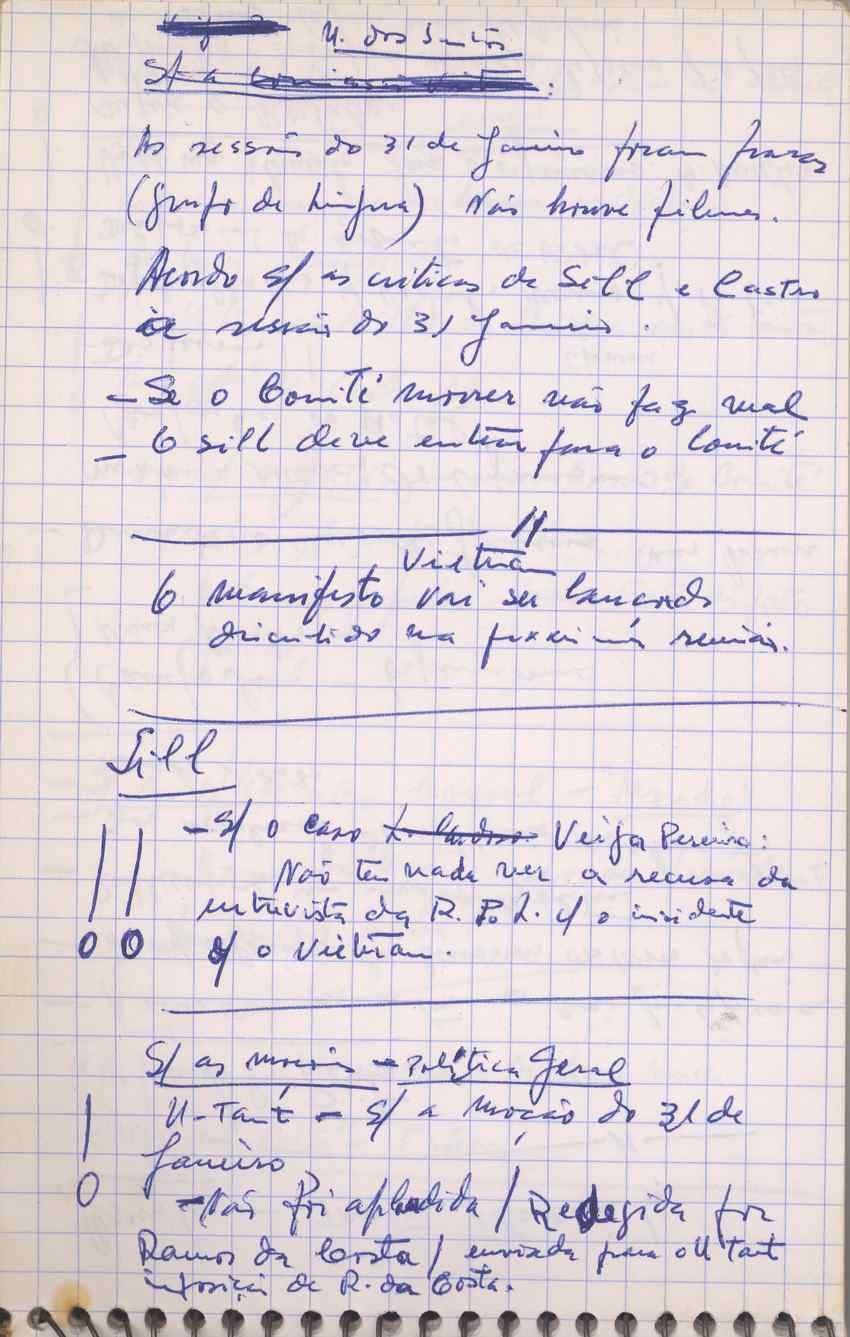 M. dos Santos
S/ a
As sessões do 31 de Janeiro foram fracas
(Grupo de Língua) Não houve filmes.
Acordo s/ as críticas de Sill e Castro
à sessão do 31 Janeiro.
– Se o Comité morrer não faz mal
– O Sill deve entrar para o Comité
Vietnam
O manifesto vai ser lançado
discutido na próxima reunião.
Sill
– S/ o caso Veiga Pereira:
Não tem nada ver a recusa da
entrevista da R. P. L. c/ o incidente
s/ o Vietnam.
S/ as moções – Política Geral
U-Tant – S/ a moção do 31 de
Janeiro
– Não foi aplaudida / Redegida por
Ramos da Costa / enviada para o U Tant
imposição de R. da Costa.